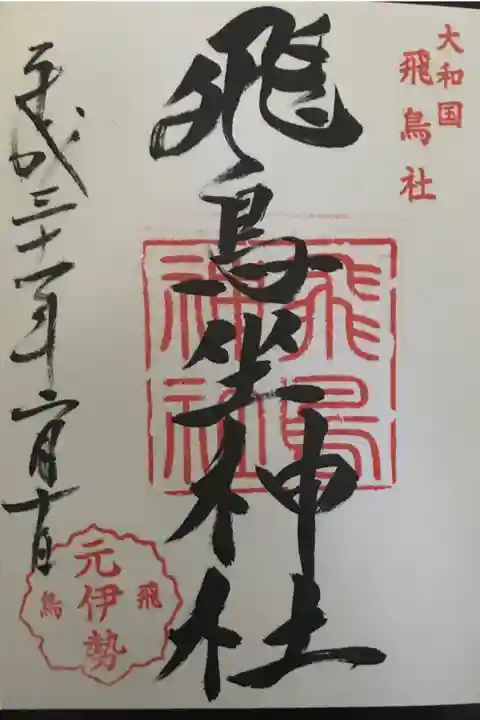 大和国
飛鳥社
飛鳥坐神社
飛鳥
神社
平成三十一年二月十日
飛
元伊勢
鳥